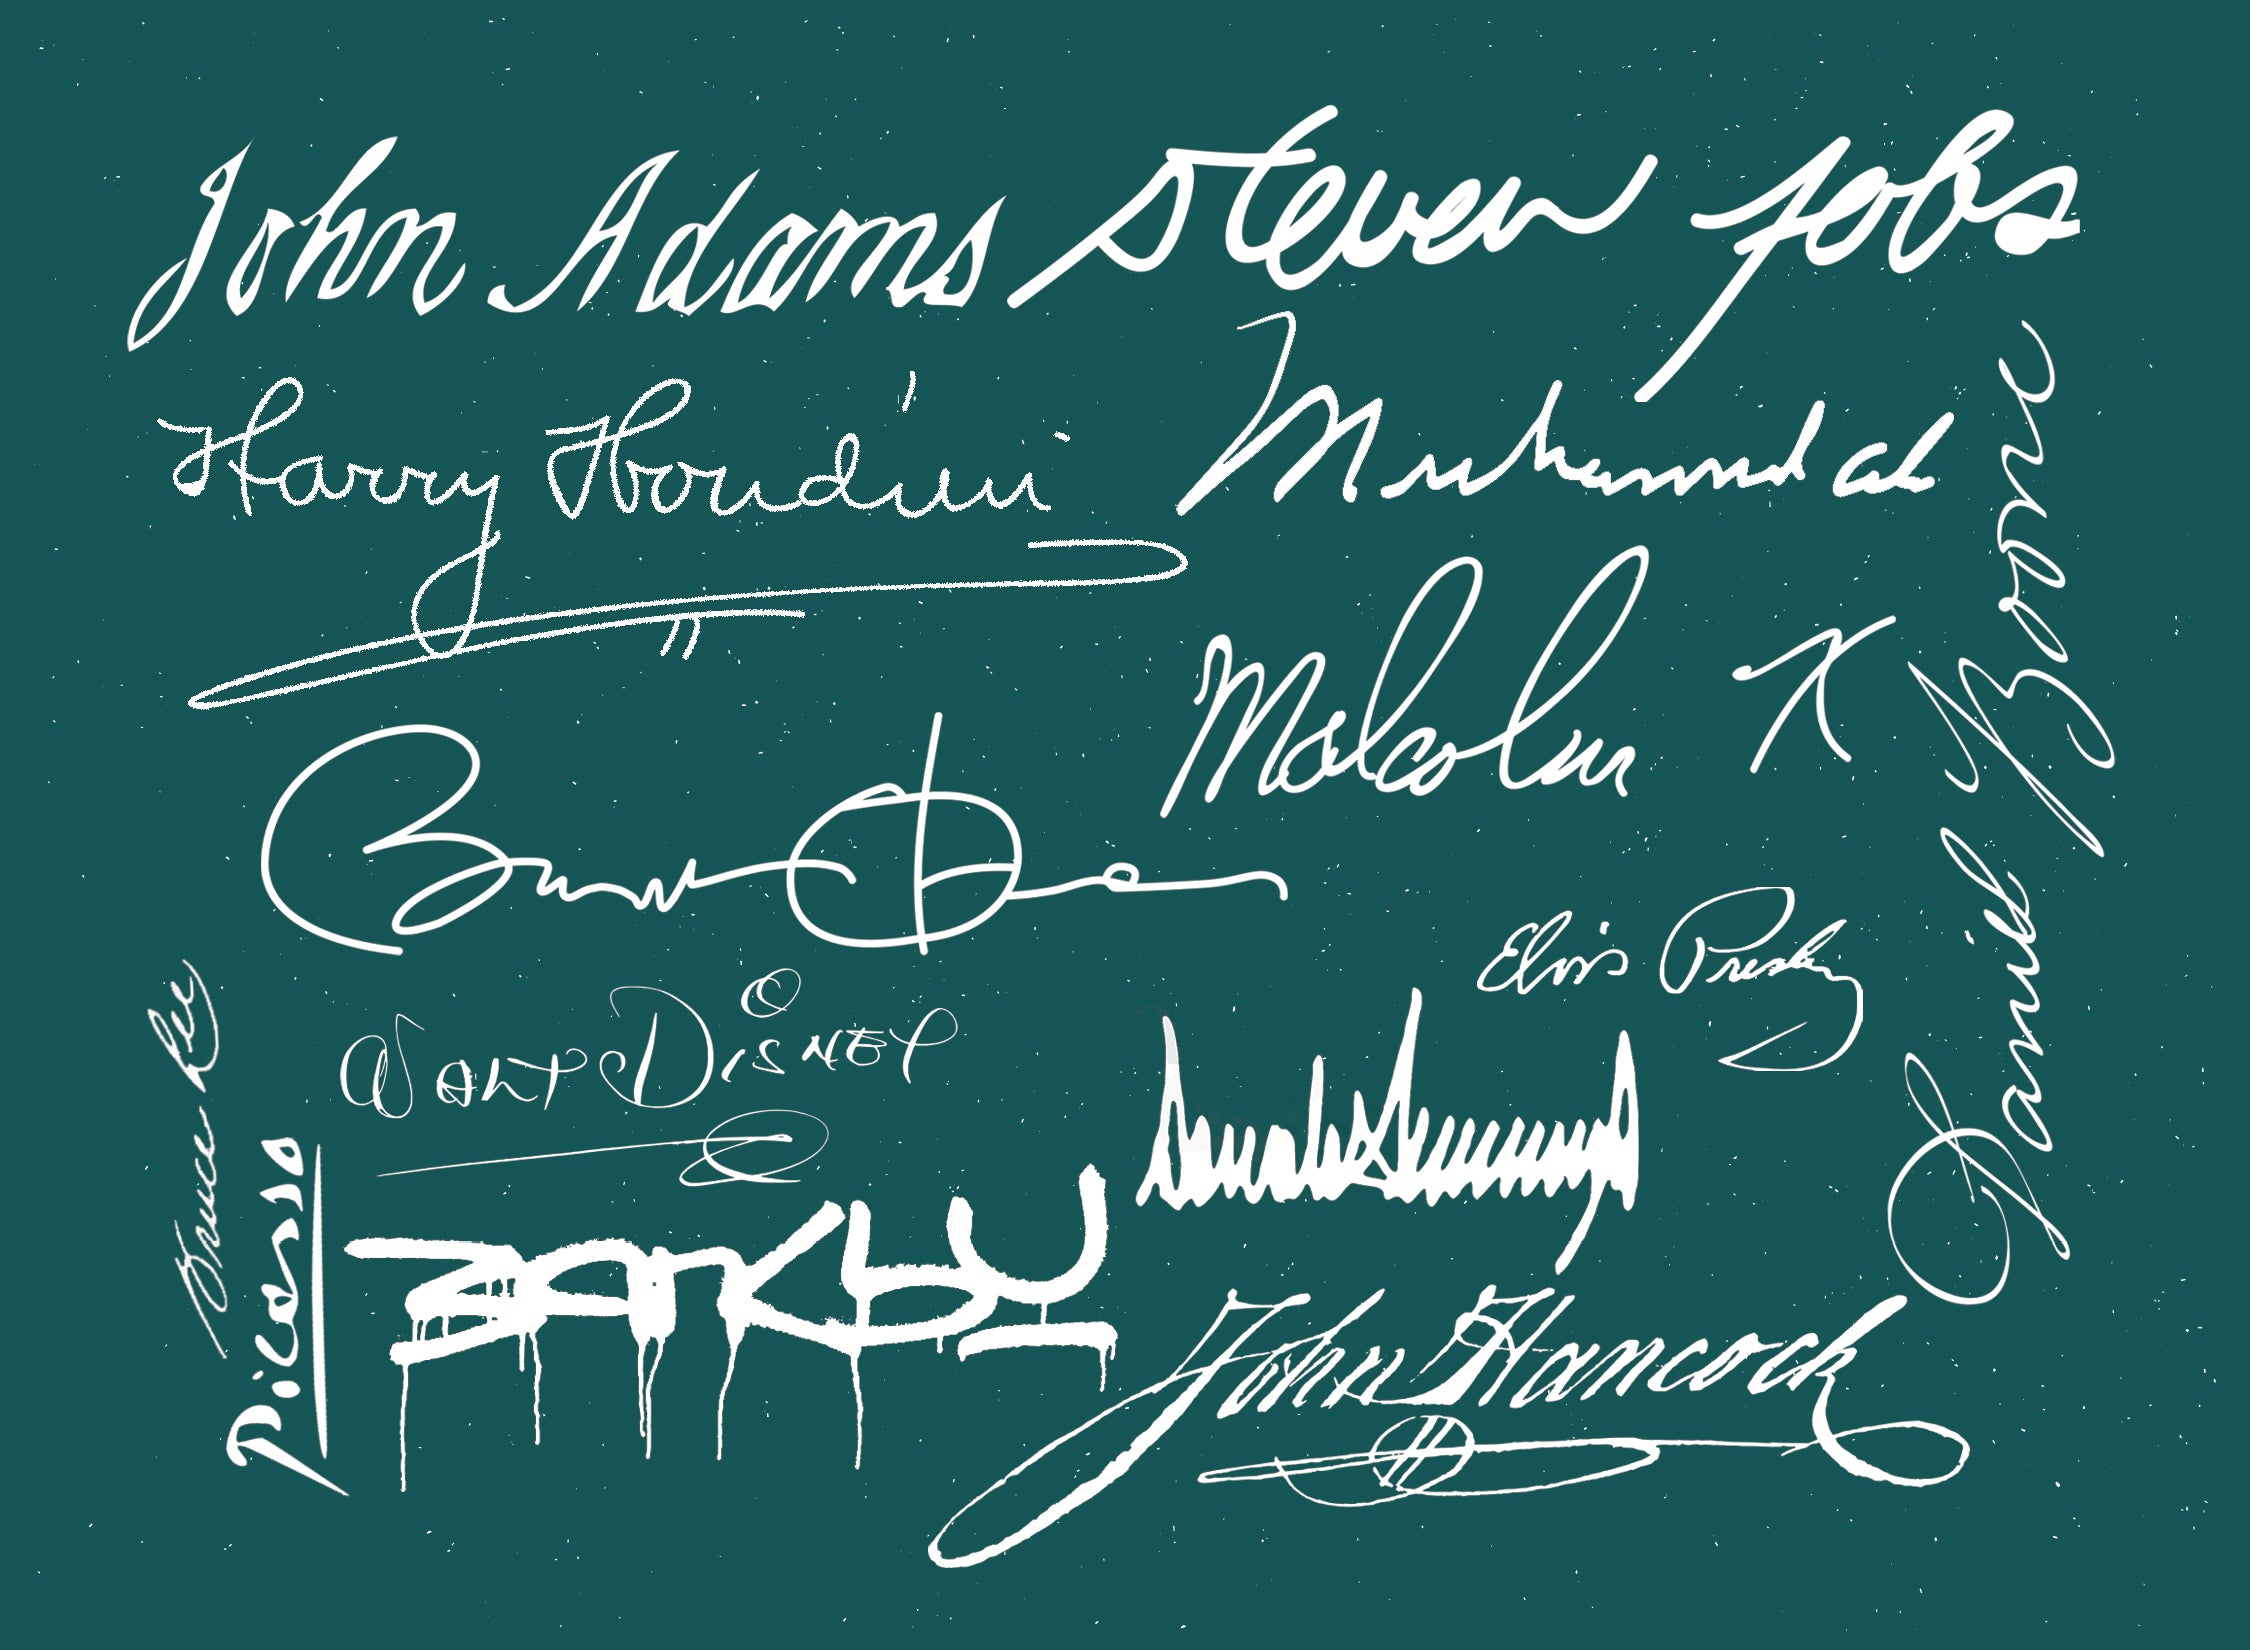 John Adams
steven jobs
Harry Houdini
Muhammad Ali
Malcolm X
Daniel Boone
Barack Obama
Elvis Presley
Walt Disney
Bruce Lee
Picasso
Donald Trump
BANKSY
John Hancock